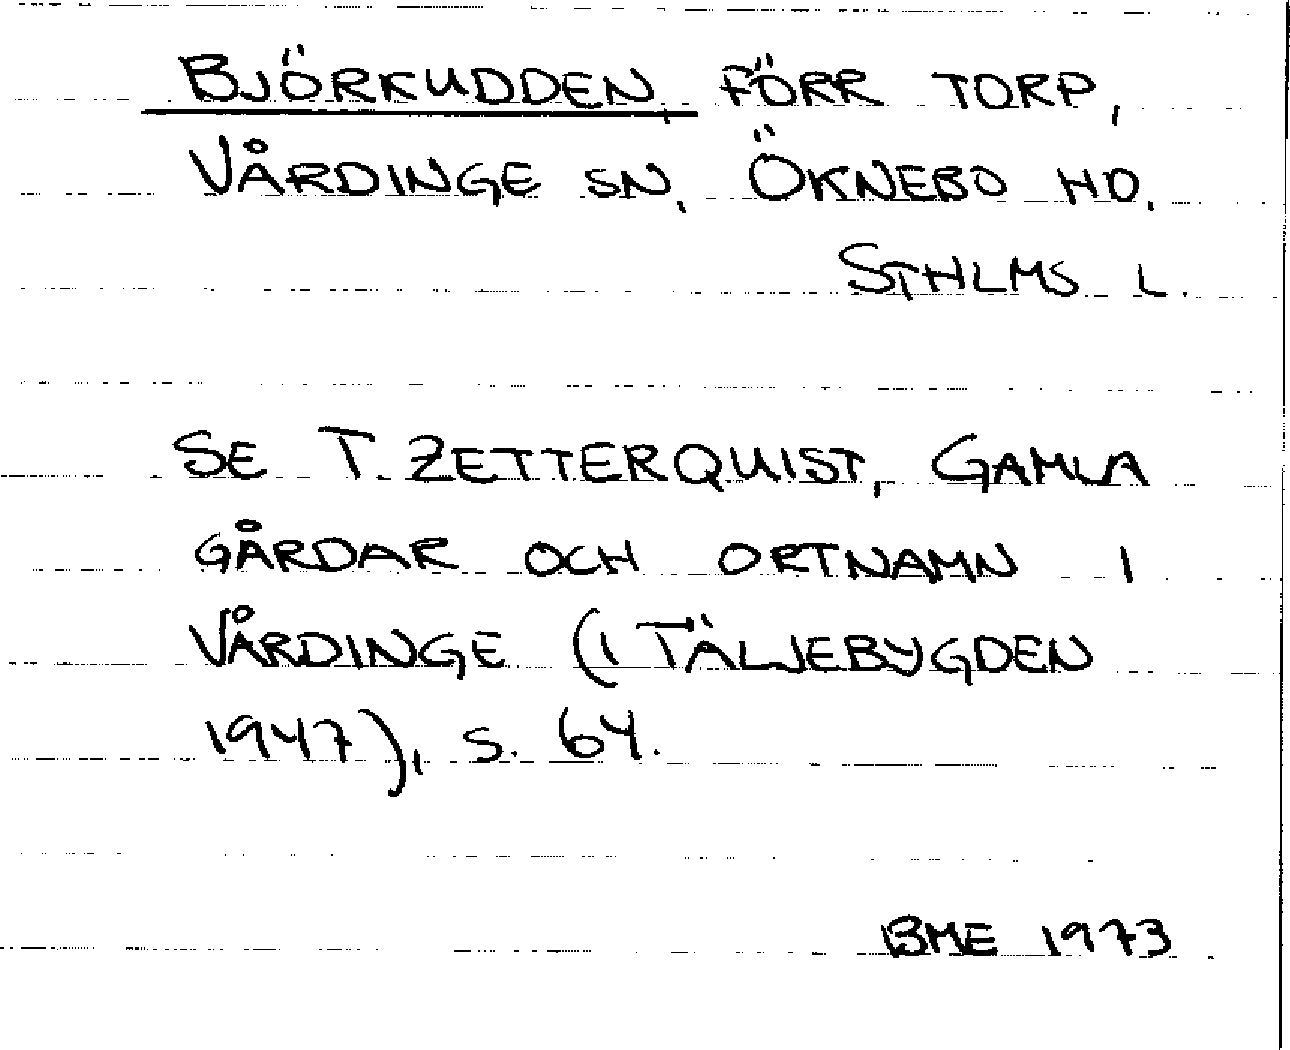 BJÖRKUDDEN, FÖRR TORP,
VÅRDINGE SN, ÖKNEBO HD,
STHLMS L.
SE T. ZETTERQUIST, GAMLA
GÅRDAR OCH ORTNAMN I
VÅRDINGE (I TÄLJEBYGDEN
1947), S. 64.
BME 1973